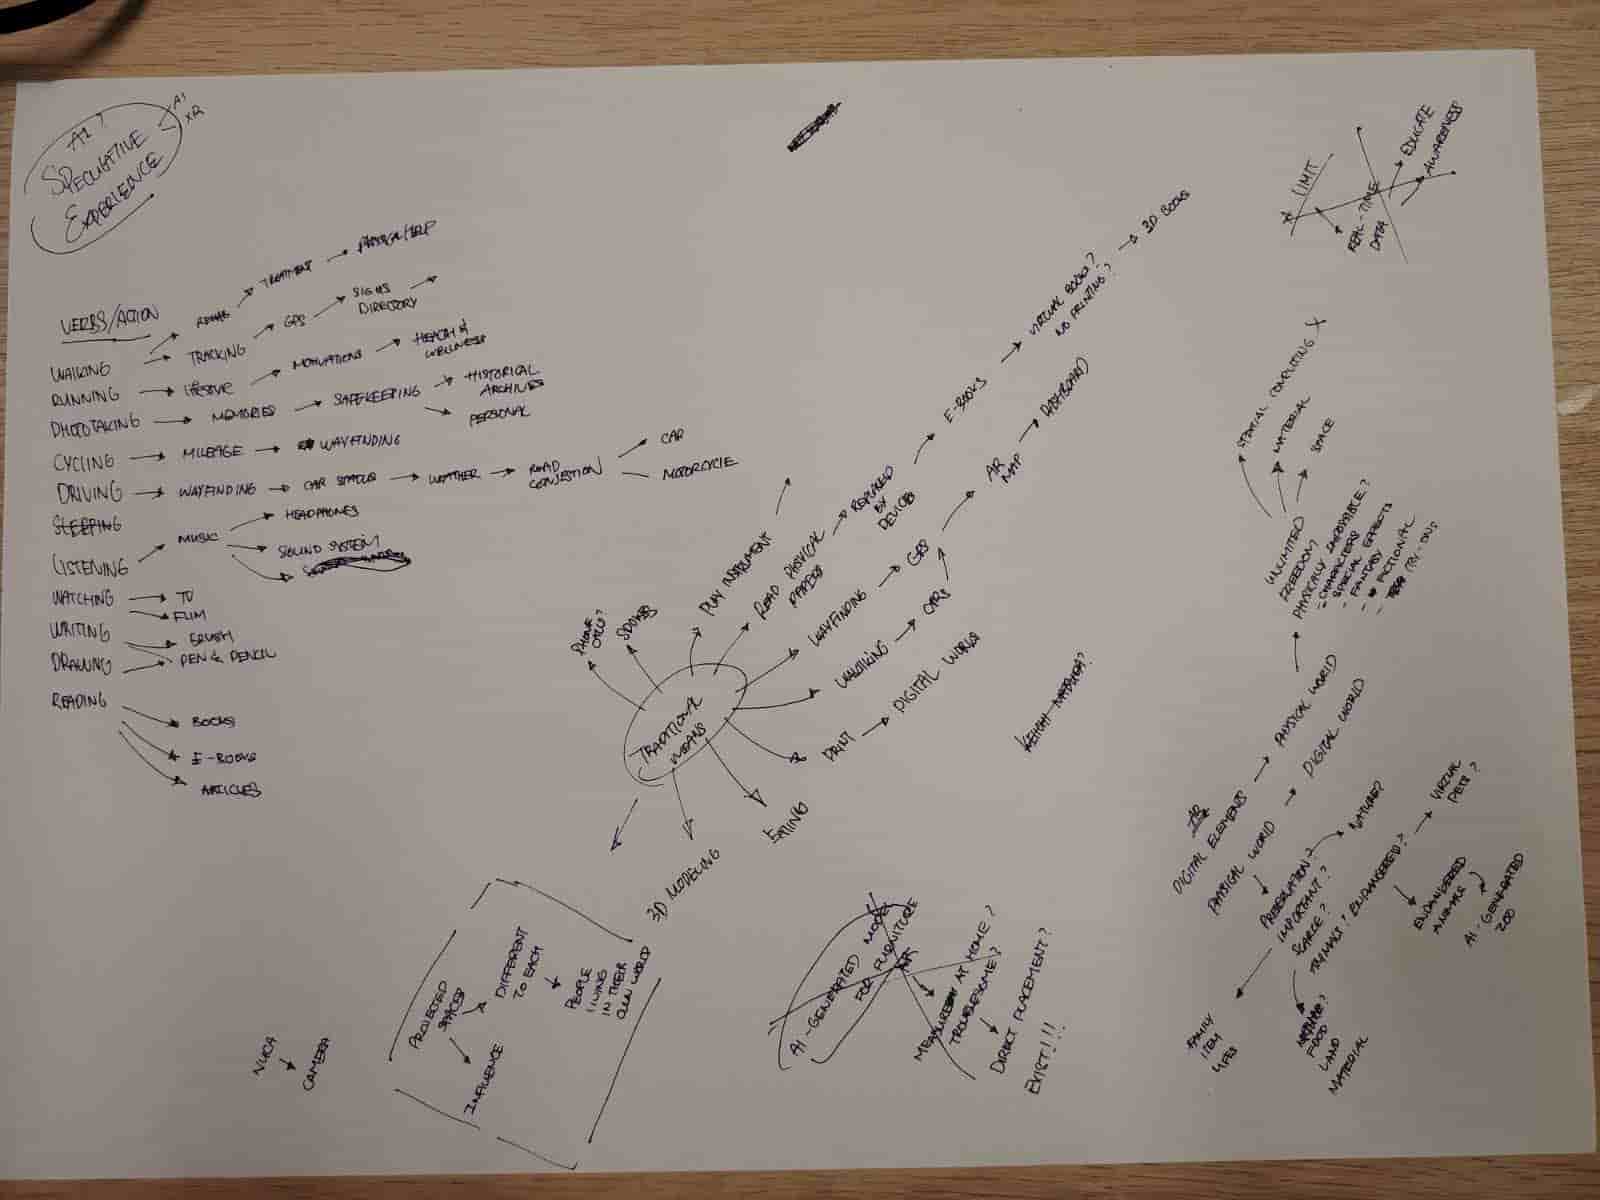 AI?
SPECULATIVE
EXPERIENCE
AI
XR
VERBS/ACTION
WALKING
REHAB
TREATMENT
PHYSICAL HELP
TRACKING
GPS
SIGNS
DIRECTORY
RUNNING
LIFESTYLE
MOTIVATIONS
HEALTH &
WELLNESS
PHOTOTAKING
MEMORIES
SAFEKEEPING
HISTORICAL
ARCHIVES
PERSONAL
CYCLING
MILEAGE
WAYFINDING
DRIVING
WAYFINDING
CAR STATUS
WEATHER
ROAD
CONGESTION
CAR
MOTORCYCLE
SLEEPING
LISTENING
MUSIC
HEADPHONES
SOUND SYSTEM
WATCHING
TV
FILM
WRITING
BRUSH
DRAWING
PEN & PENCIL
READING
BOOKS
E-BOOKS
ARTICLES
TRADITIONAL
MEANS
PHONE
CALLS?
PLAY INSTRUMENT
READ PHYSICAL
PAPERS
REPLACED
BY
DEVICES
E-BOOKS
VIRTUAL BOOKS?
NO PRINTING?
3D BOOKS
WAYFINDING
GPS
AR
MAP
DASHBOARD
WALKING
CARS
PRINT
DIGITAL WORLD
EATING
3D MODELING
PROJECTED
SPACES
DIFFERENT
TO EACH
PEOPLE
LIVING
IN THEIR
OWN WORLD
INFLUENCE
NUCA
CAMERA
AI-GENERATED MODEL
FOR FURNITURE
MEASUREMENT AT HOME?
TROUBLESOME?
DIRECT PLACEMENT?
EXIST!!!
LIMIT
REAL-TIME
DATA
EDUCATE
AWARENESS
SPATIAL COMPUTING X
MATERIAL
SPACE
UNLIMITED
FREEDOM
PHYSICALLY IMPOSSIBLE?
- CHARACTERS
- SPECIAL EFFECTS
- FANTASY
- FICTIONAL
- TRY-ONS
AR
DIGITAL ELEMENTS
PHYSICAL WORLD
PHYSICAL WORLD
DIGITAL WORLD
PRESERVATION?
IMPORTANT?
SCARCE?
NATURE?
ENDANGERED?
VIRTUAL
PETS?
ENDANGERED
ANIMALS
AI-GENERATED
ZOO
FAMILY
ITEM
FOOD
LAND
MATERIAL